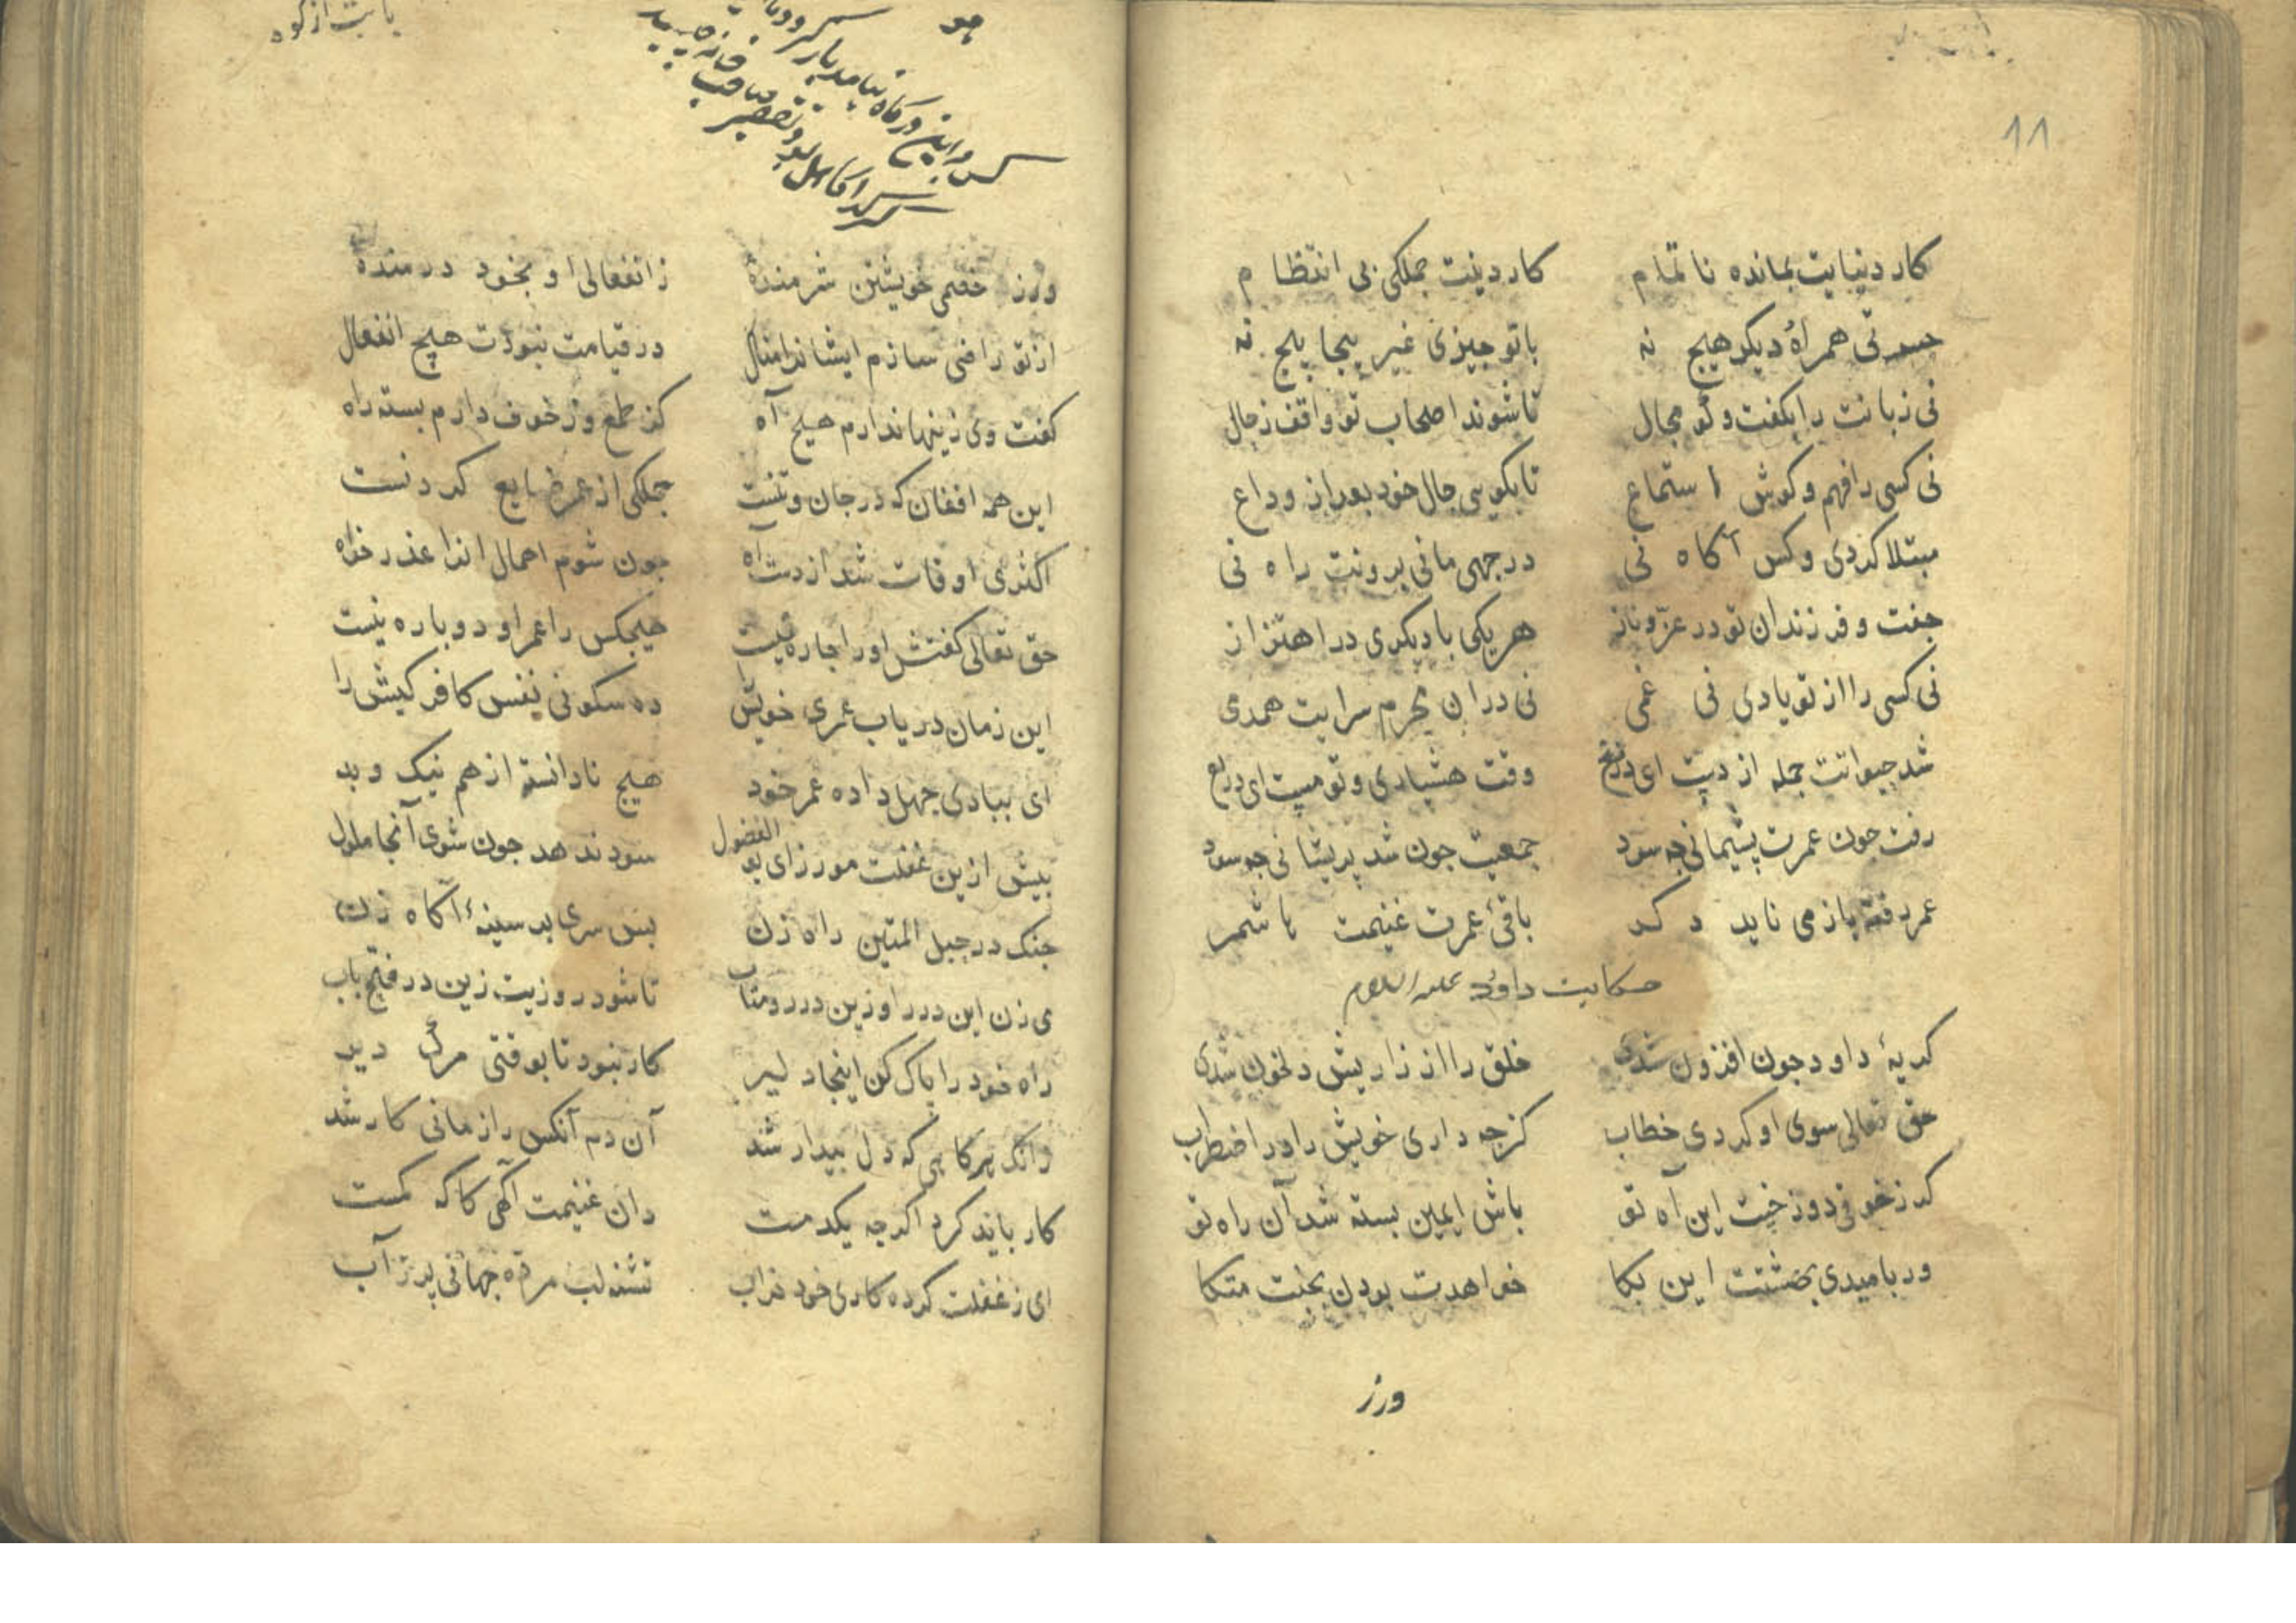 ۱۸
کار دنیایت بمانده نا تمام کار دینت جملکی بی انتظام
حسرتی همراه دیکر هیج نه باتو جیزی غیر پیجا پیج نه
نی زبانت را بکفت و کو مجال تا شوند اصحاب تو واقف ز حال
نی کسی را فهم و کوش استماع تا بکویی حال خود بعد از وداع
مبتلا کردی و کس آکاه نی در جهی مانی برونت راه نی
جفت و فرزندان تو در عزّ و ناز هر یکی با دیکری در اهتزاز
نی کسی را از تو یادی نی غمی نی در ان محرم سرایت همدمی
شد حیوانت جمله از دست ای دریغ وقت هشیاری و تو مست ای دریغ
رفت جون عمرت پشیمانی جه سود جمعیت جون شد پریشانی جه سود
عمر رفته باز می ناید دکر باقیٔ عمرت غنیمت ما شمر
حکایت داود علیه السلام
کریهٔ داود جون افزون شدی خلق را از زاریش دلخون شدی
حق تعالی سوی او کردی خطاب کز جه داری خویش را در اضطراب
کر ز خوفی دوزخست این آه تو باش ایمین بسته شد آن راه تو
ور بامیدی بهشتت این بکا خواهدت بودن بجنت متکا
ورز
هو
یابت از کوه
ورز خصمی خویشتن شرمندهٔ ز انفعالی او بخود درمندهٔ
از تو راضی سازم ایشانرا منال در قیامت نبودت هیچ انفعال
کفت وی زینها ندارم هیج آه کز طمع وز خوف دارم بسته راه
این همه افغان که در جان و تنست جملکی از عمر ضایع کردنست
اکثری اوقات شد از دست آه جون شوم اهمال انرا عذر خواه
حق تعالی کفتش اورا جاره نیست هیجکس را عمر او دوباره نیست
این زمان دریاب عمری خویش را ده سکونی نفس کافر کیش را
ای ببادی جهل داده عمر خود هیج نادانسته از هم نیک و بد
بیش ازین غفلت مورز ای بو الفضول سود ندهد جون شوی آنجا ملول
جنک در حبل المتین راه زن بس سری بر سینهٔ آکاه زن
می زن این در را وزین در رو متاب تا شود روزیت زین در فتح باب
راه خود را پاک کن اینجا دلیر کار نبود تا بوقتی مرک دیر
وانک پرکاهی که دل بیدار شد آن دم آنکس را زمانی کار شد
کار باید کرد اکرجه یکدمست دان غنیمت آکهی کاکه کمست
ای ز غفلت کرده کاری خود خراب تشنه لب مرده جهانی پر ز آب